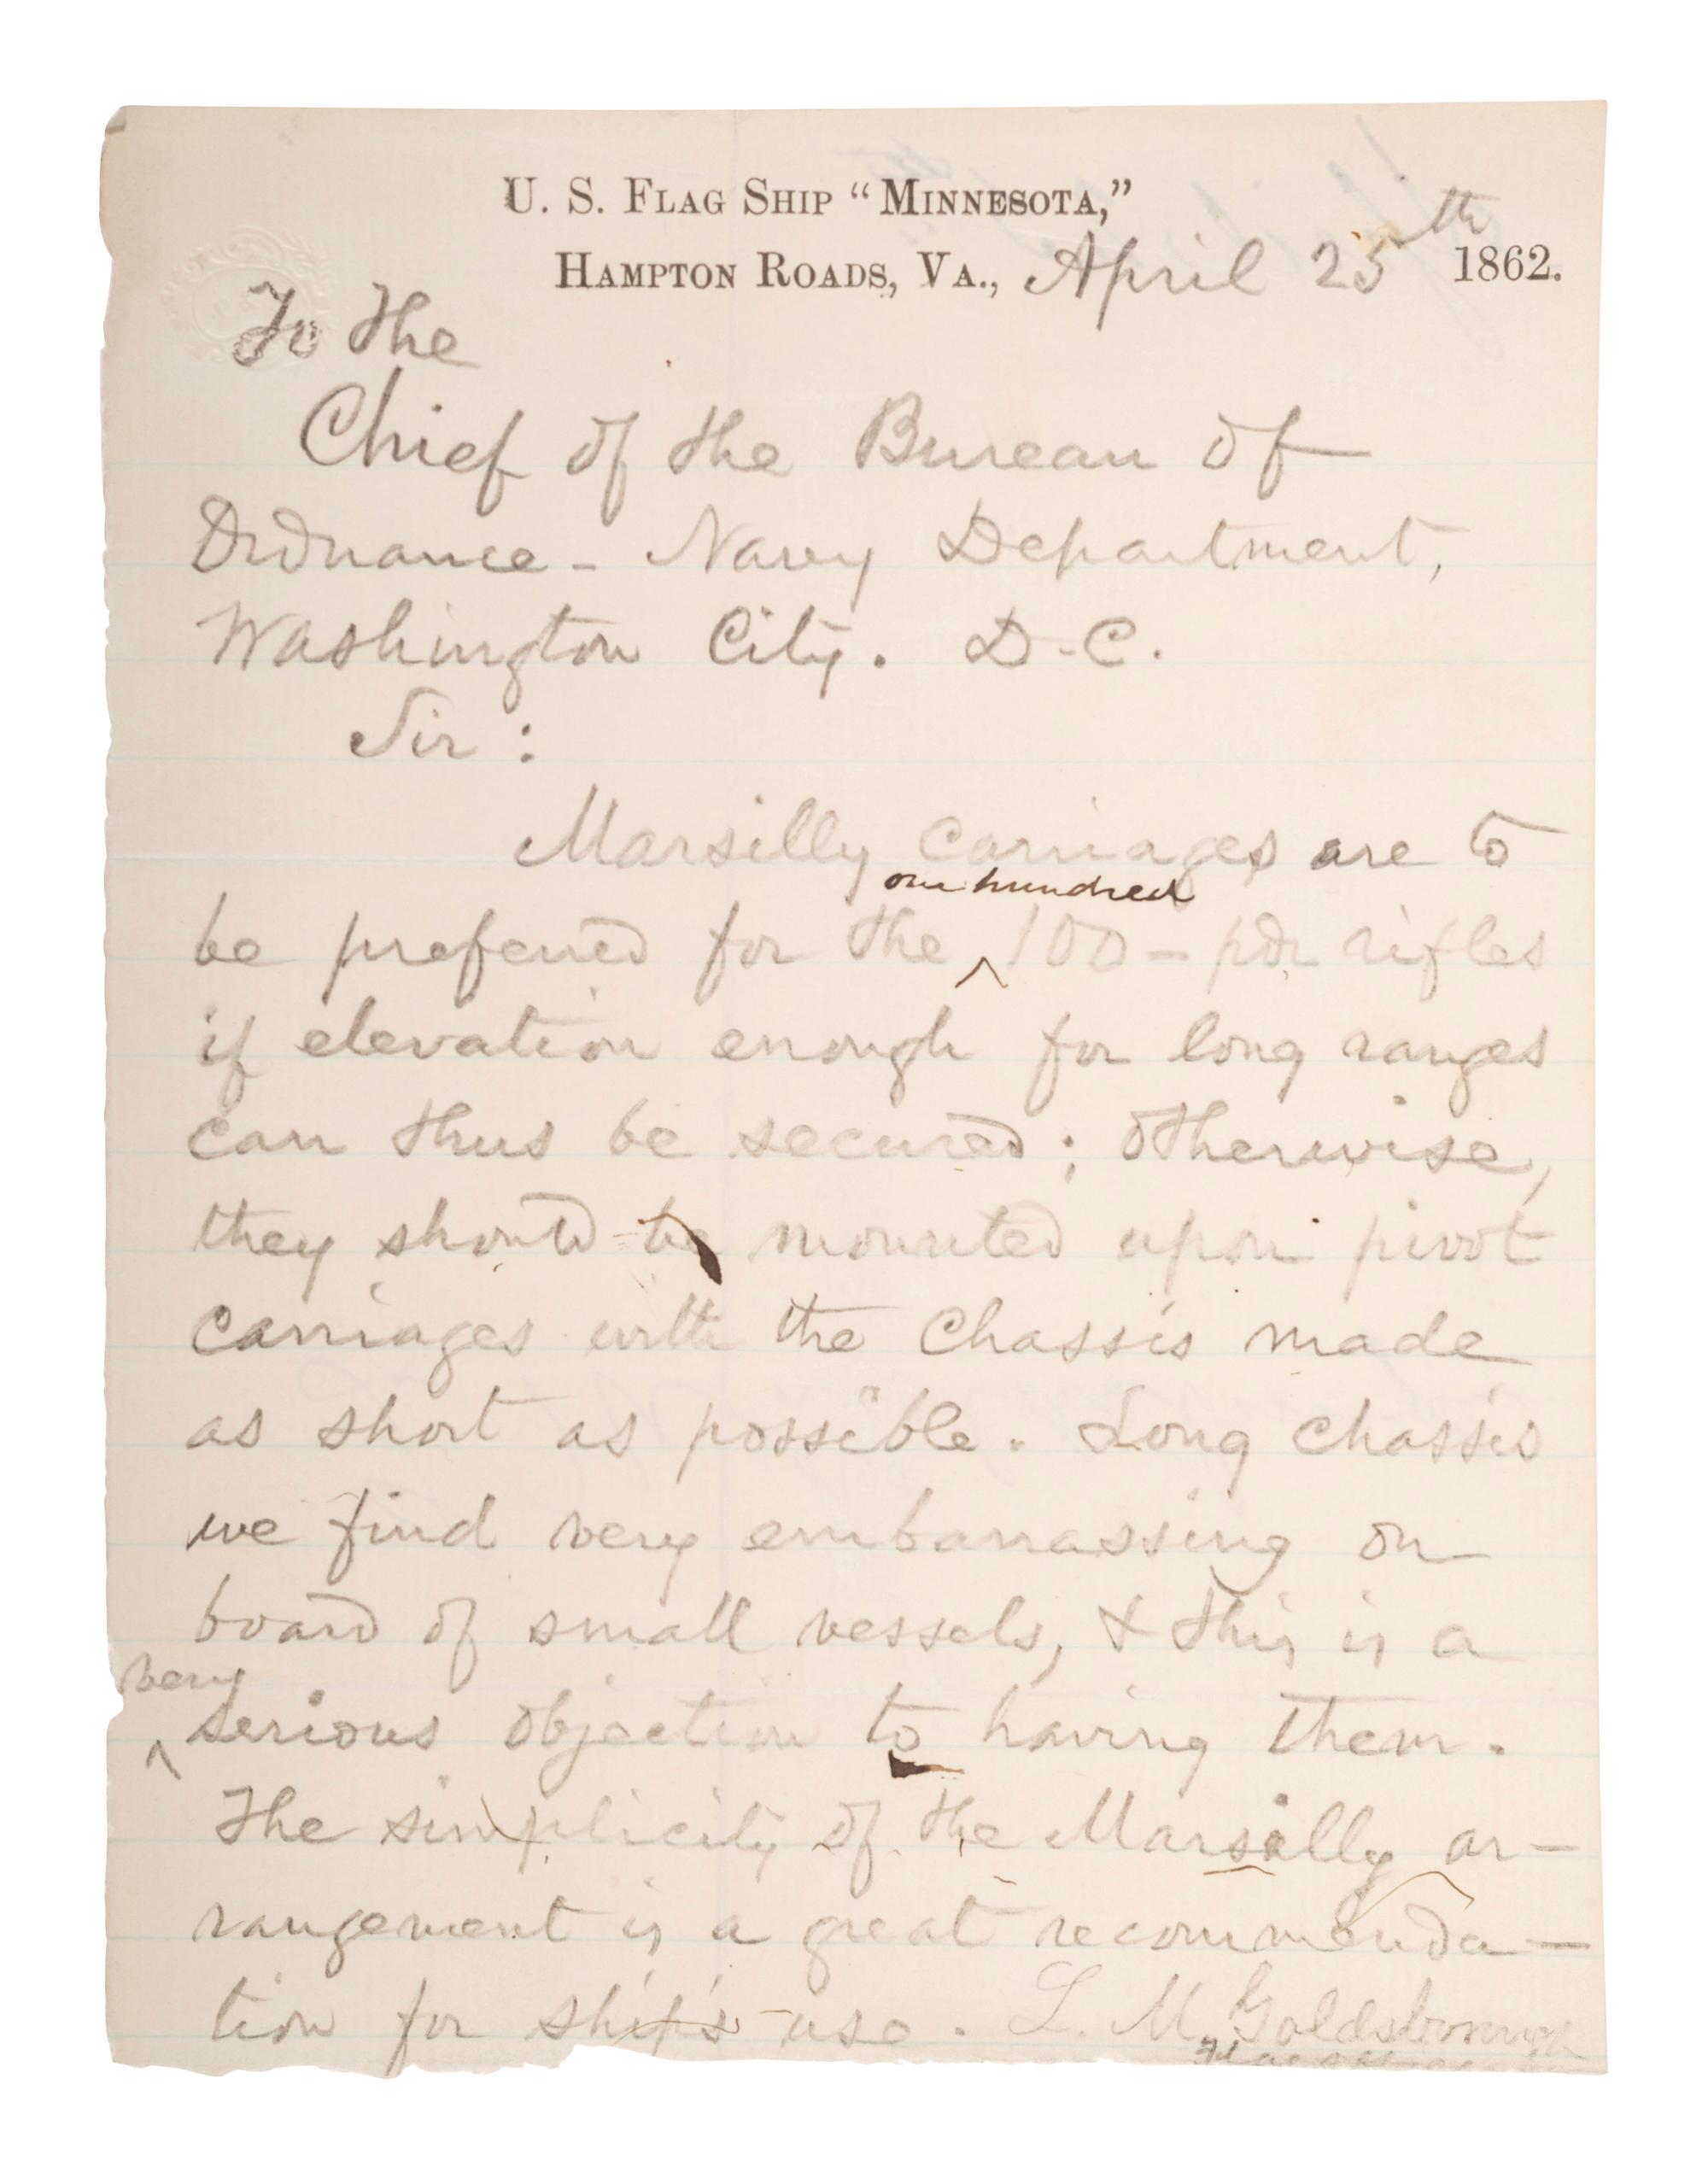 U. S. FLAG SHIP “MINNESOTA,”
HAMPTON ROADS, VA., April 25th 1862.
To the
Chief of the Bureau of
Ordnance - Navy Department,
Washington City. D. C.
Sir :
Marsilly Carriages are to
one hundred
be preferred for the ^ 100 - pdr rifles
if elevation enough for long ranges
can thus be secured ; otherwise,
they should be mounted upon pivot
carriages with the Chassis made
as short as possible. Long chassis
we find very embarrassing on
board of small vessels, & this is a
very
^ serious objection to having them.
The simplicity of the Marsilly ar-
rangement is a great recommenda-
tion for ship's use. L. M. Goldsborough